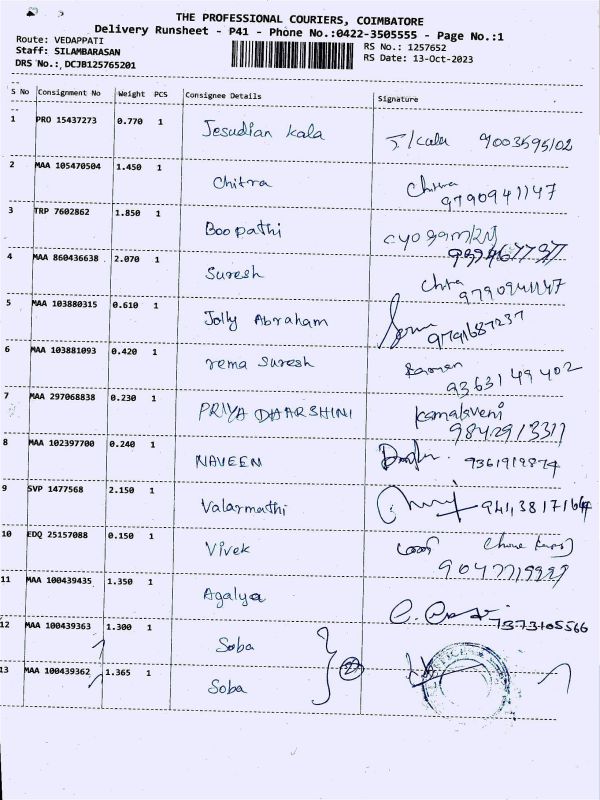 THE PROFESSIONAL COURIERS, COIMBATORE
Delivery Runsheet - P41 - Phone No.:0422-3505555 - Page No.:1
Route: VEDAPPATI
RS No.: 1257652
Staff: SILAMBARASAN
RS Date: 13-Oct-2023
DRS No.: DCJB125765201
S No Consignment No Weight PCS Consignee Details Signature
1 PRO 15437273 0.770 1 Jesudian kala J/kala 9003595102
2 MAA 105470504 1.450 1 Chitra Chitra
9790941147
3 TRP 7602862 1.850 1 Boopathi
4 MAA 860436638 2.070 1 Suresh
9790941147
5 MAA 103880315 0.610 1 Jolly Abraham
9791687237
6 MAA 103881093 0.420 1 rema suresh
9363149402
7 MAA 297068838 0.230 1 PRIYA DHARSHINI Kamalaveni
9842913311
8 MAA 102397700 0.240 1 NAVEEN 9361919874
9 SVP 1477568 2.150 1 Valarmathi
10 EDQ 25157088 0.150 1 Vivek
11 MAA 100439435 1.350 1 Agalya
7373105566
12 MAA 100439363 1.300 1 Soba
2
13 MAA 100439362 1.365 1 Soba